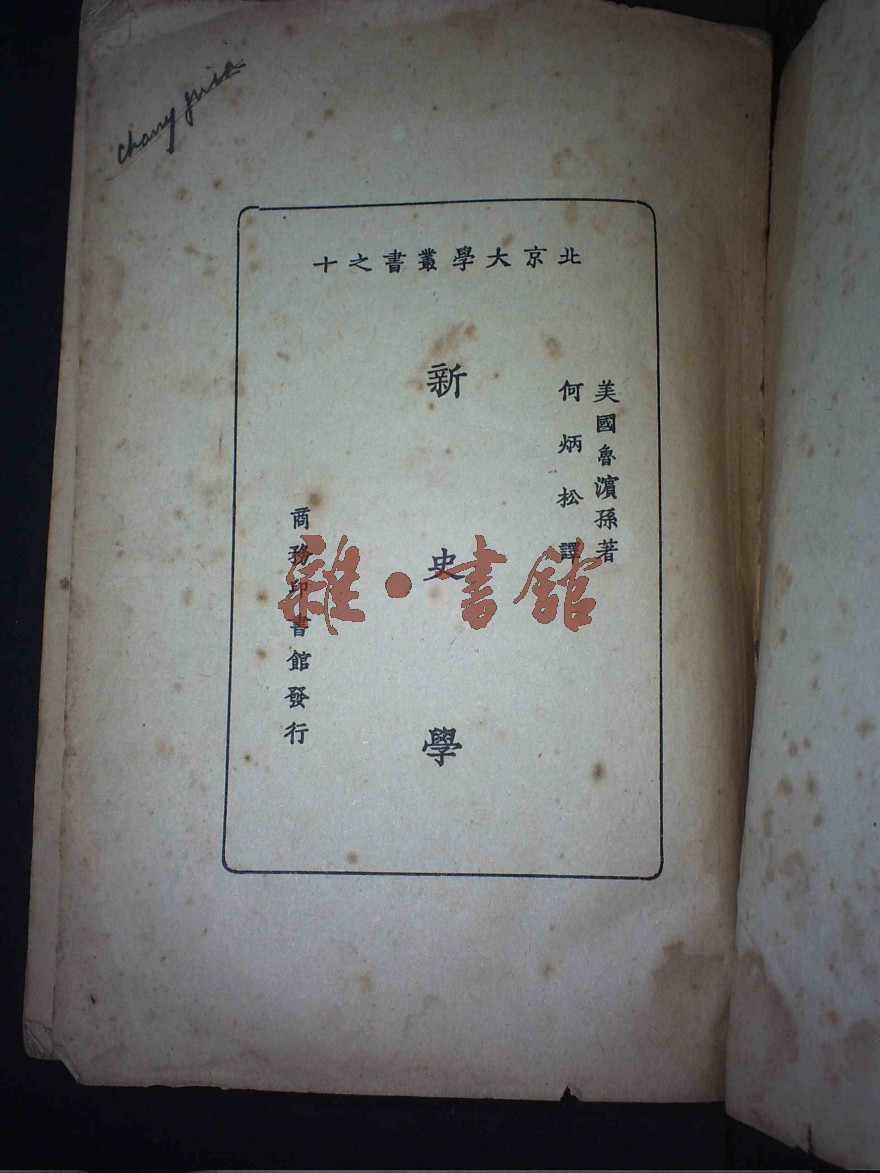 北京大學叢書之十
美國魯濱孫著
何炳松譯
新史學
商務印書館發行
雜·書館